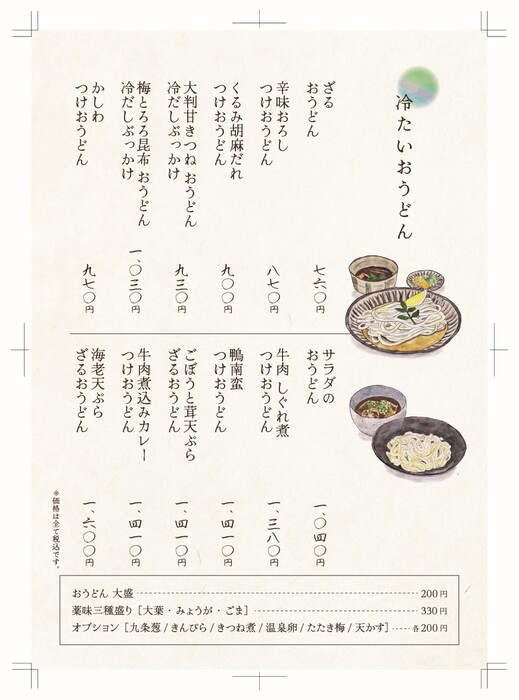 冷たいおうどん
ざる
おうどん
七六〇円
辛味おろし
つけおうどん
八七〇円
くるみ胡麻だれ
つけおうどん
九〇〇円
大判甘きつね おうどん
冷だしぶっかけ
九三〇円
梅とろろ昆布 おうどん
冷だしぶっかけ
一、〇三〇円
かしわ
つけおうどん
九七〇円
サラダの
おうどん
一、〇四〇円
牛肉 しぐれ煮
つけおうどん
一、三八〇円
鴨南蛮
つけおうどん
一、四一〇円
ごぼうと茸天ぷら
ざるおうどん
一、四一〇円
牛肉煮込みカレー
つけおうどん
一、四一〇円
海老天ぷら
ざるおうどん
一、六〇〇円
※価格は全て税込です。
おうどん 大盛 200円
薬味三種盛り［大葉・みょうが・ごま］ 330円
オプション［九条葱 / きんぴら / きつね煮 / 温泉卵 / たたき梅 / 天かす］ 各200円